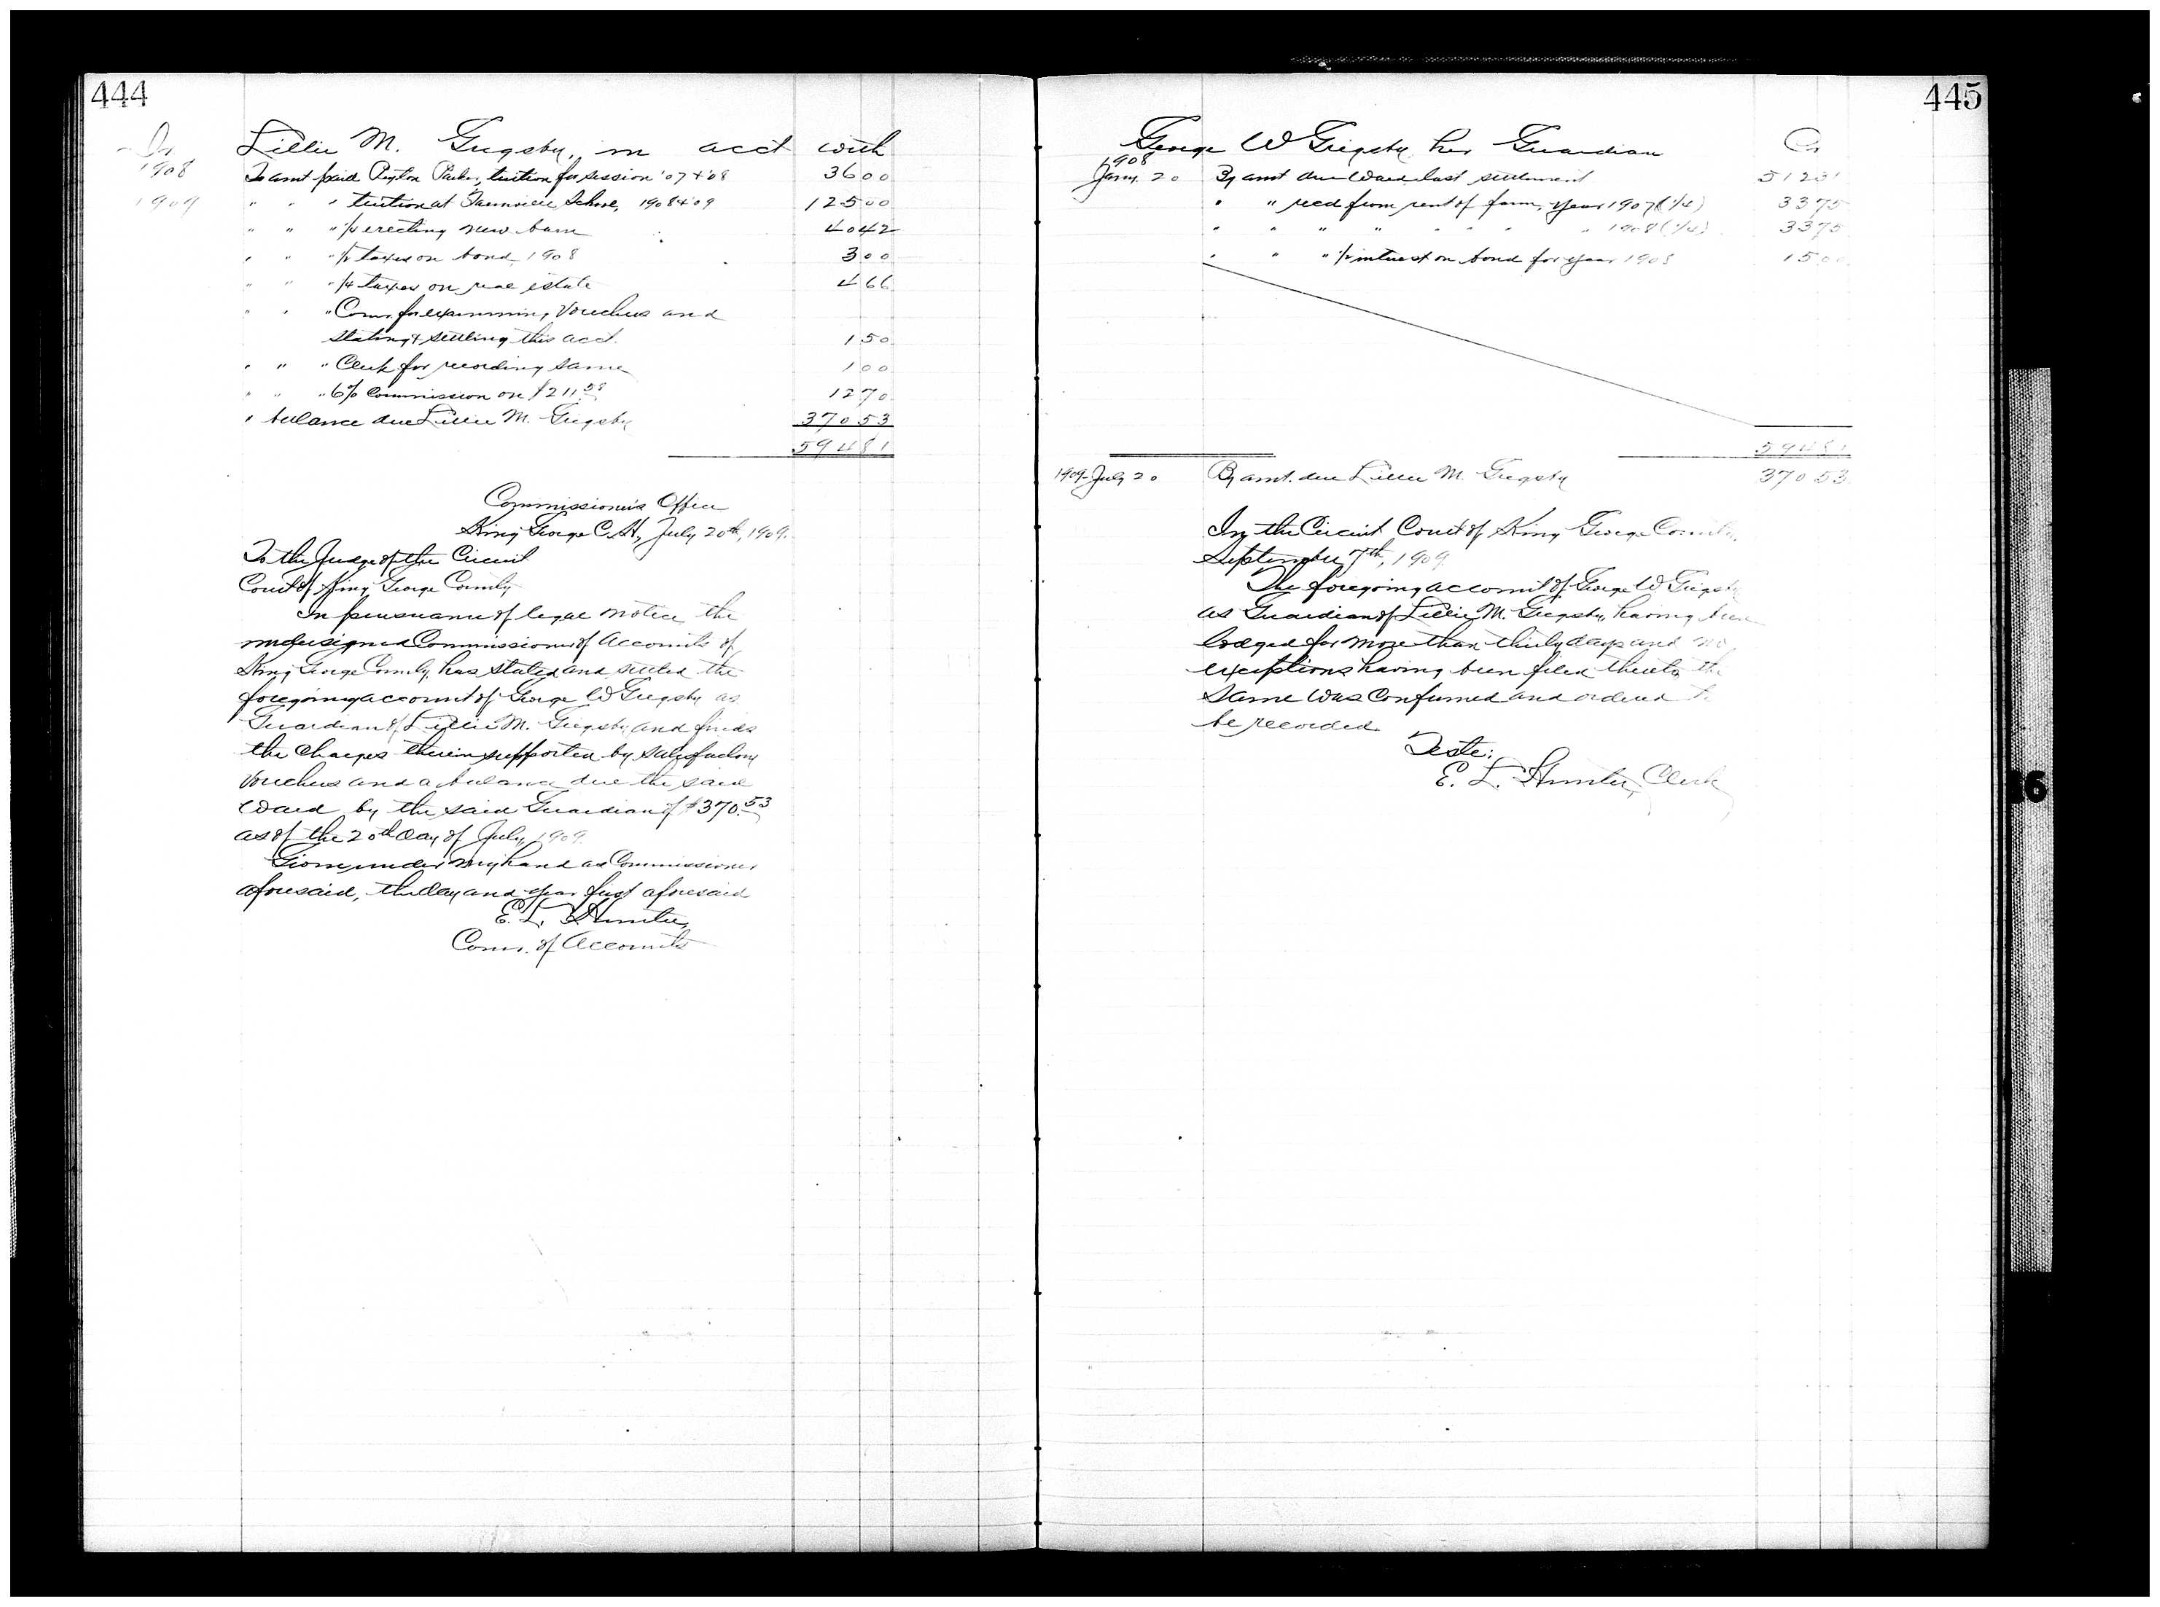 444
Dr Lillie M. Grigsby, in acct with
1908 To amt paid Payton Parker, tuition for session '07 & '08 36 00
1909 " " " tuition at Farmville School, 1908 & '09 125 00
" " " 1/4 erecting new barn 40 42
" " " 1/2 taxes on bond, 1908 3 00
" " " 1/4 taxes on real estate 4 66
" " " Comr. for examining vouchers and
stating & settling this acct. 1 50
" " " Clerk for recording same 1 00
" " " 6% commission on $211.58 12 70
" balance due Lillie M. Grigsby 370 53
594 81
Commissioner's Office
King George C.H., July 20th, 1909.
To the Judge of the Circuit
Court of King George County
In pursuance of legal notice the
undersigned Commissioner of Accounts of
King George County, has stated and settled the
foregoing account of George W Grigsby as
Guardian of Lillie M. Grigsby and finds
the charges therein supported by satisfactory
vouchers and a balance due the said
Ward by the said Guardian of $370.53
as of the 20th day of July, 1909.
Given under my hand as Commissioner
aforesaid, the day and year first aforesaid
E. L. Hunter,
Comr. of Accounts
445
George W Grigsby her Guardian Cr
1908
Jany. 20 By amt due Ward last settlement 512 31
" " recd from rent of farm, year 1907 (1/4) 33 75
" " " " " " " " 1908 (1/4) 33 75
" " " 1/2 interest on bond for year 1908 15 00
594 81
1909 July 20 By amt. due Lillie M. Grigsby 370 53
In the Circuit Court of King George County,
September 7th, 1909.
The foregoing account of George W Grigsby
as Guardian of Lillie M. Grigsby, having been
lodged for more than thirty days and no
exceptions having been filed thereto the
same was confirmed and ordered to
be recorded.
Teste:
E. L. Hunter, Clerk